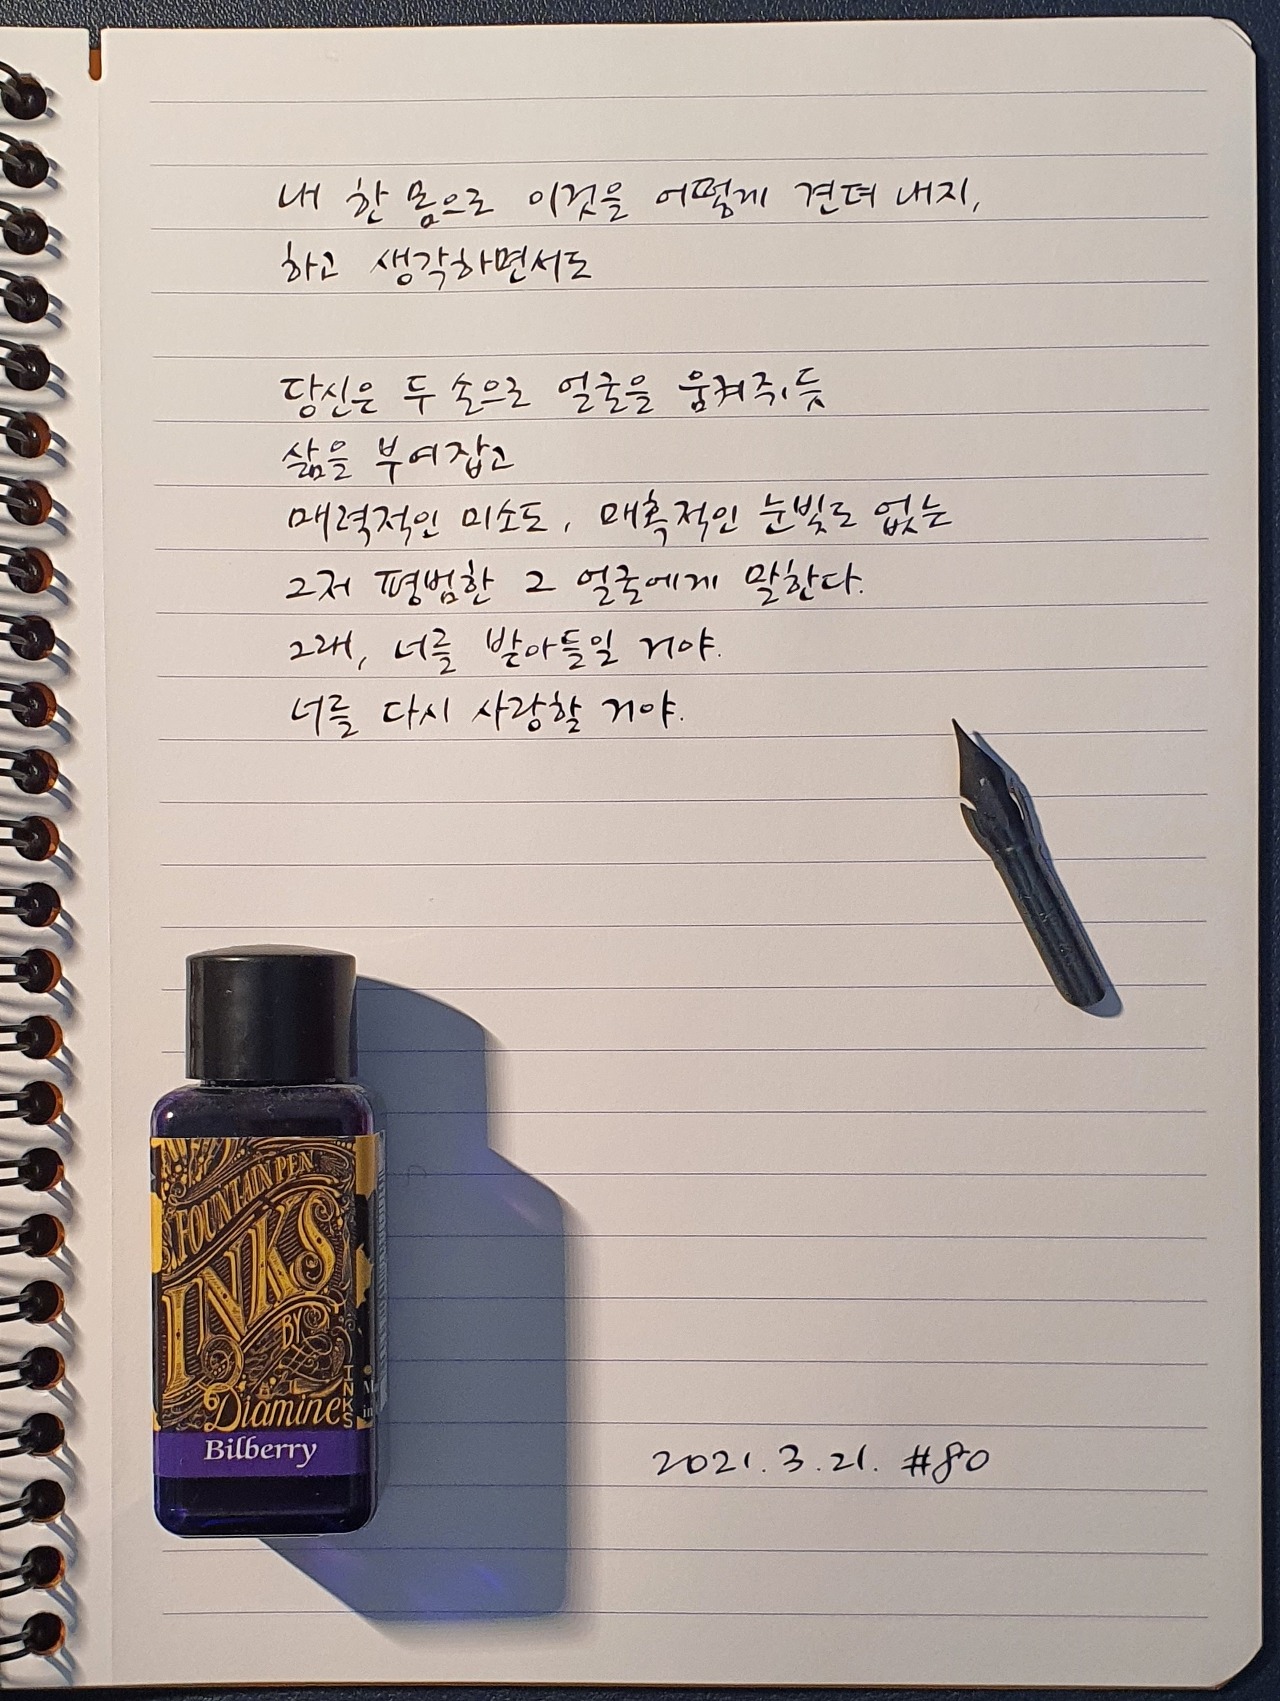 내 한 몸으로 이것을 어떻게 견뎌 내지,
하고 생각하면서도
당신은 두 손으로 얼굴을 움켜쥐듯
삶을 부여잡고
매력적인 미소도, 매혹적인 눈빛도 없는
그저 평범한 그 얼굴에게 말한다.
그래, 너를 받아들일 거야.
너를 다시 사랑할 거야.
FOUNTAIN PEN
INKS
BY
Diamine
INKS
Bilberry
2021.3.21. #80